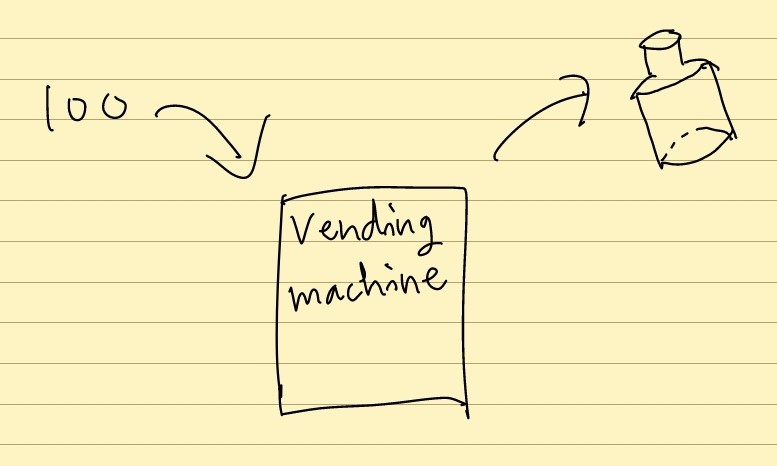 100
Vending
machine